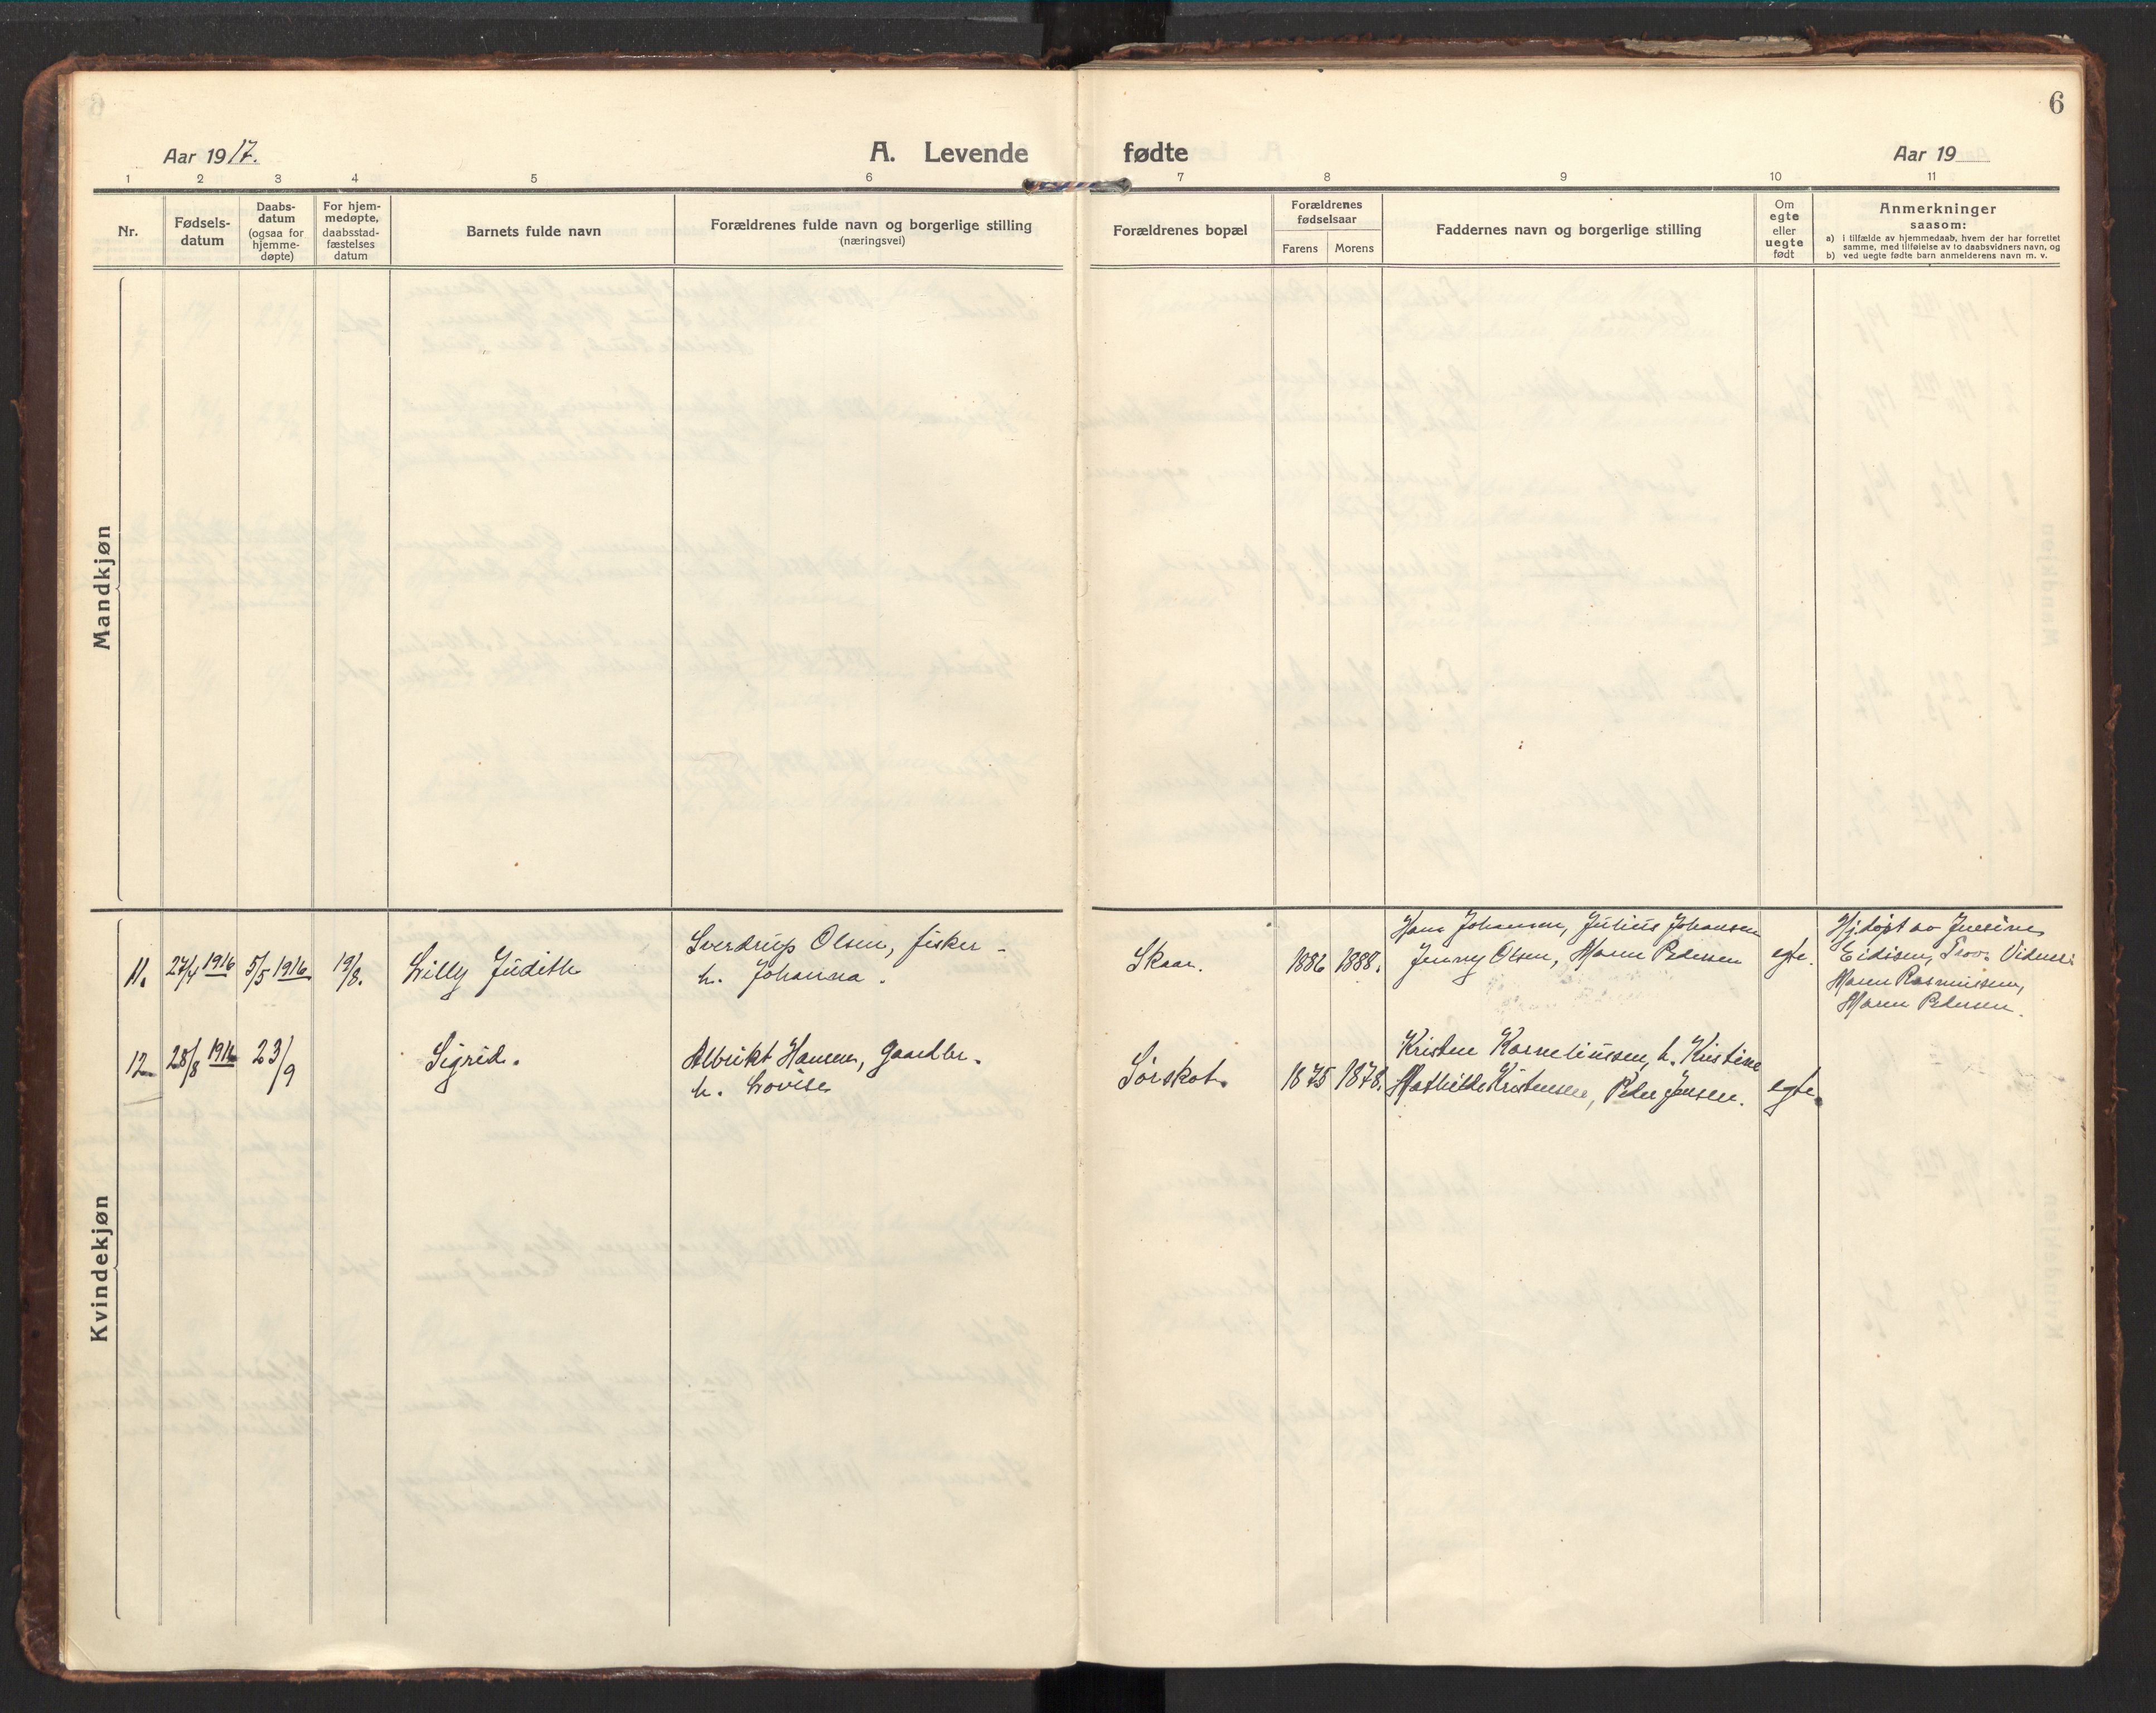 6
Aar 1917.
A. Levende
fødte
Aar 19
1 2 3 4 5 6 7 8 9 10 11
Nr.
Fødsels-
datum
Daabs-
datum
(ogsaa for
hjemme-
døpte)
For hjem-
medøpte,
daabsstad-
fæstelses
datum
Barnets fulde navn
Forældrenes fulde navn og borgerlige stilling
(næringsvei)
Forældrenes bopæl
Forældrenes
fødselsaar
Farens Morens
Faddernes navn og borgerlige stilling
Om
egte
eller
uegte
født
Anmerkninger
saasom:
a) i tilfælde av hjemmedaab, hvem der har forrettet
samme, med tilføielse av to daabsvidners navn, og
b) ved uegte fødte barn anmelderens navn m. v.
Mandkjøn
Kvindekjøn
11. 27/4 1916 5/5 1916 19/8. Lilly Judith
Sverdrup Olsen, fisker -
h. Johanna.
Skaar.
1886 1888.
Hans Johansen, Julius Johansen
Jenny Olsen, Maren Pedersen
egte.
Hj.døpt av
Eidisen, Vidner:
Maren Rasmussen,
Maren Pedersen.
12 28/8 1916 23/9
Sigrid.
Albrikt Hansen, gaardbr.
h. Lovise
Sørskot.
1875 1878.
Kristen Korneliussen, h. Kristine
Mathilde Kristensen, Peder Jensen.
egte.